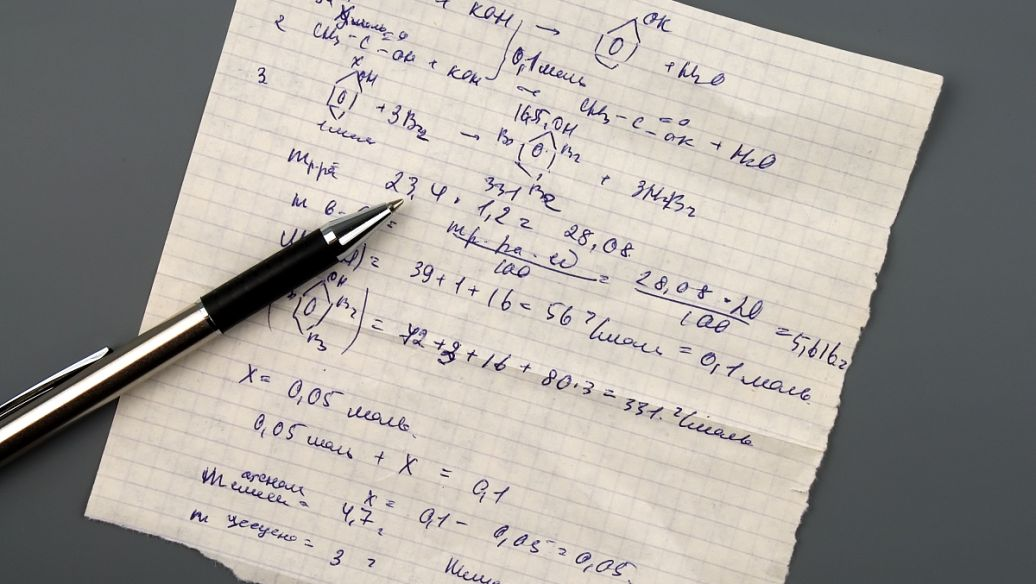 + KOH → OK + H2O
2 CH3 - C = O - OH + KOH 0,1 моль → CH3 - C = O - OK + H2O
3 X OH + 3Br2 → 16,5 OH Br Br Br + 3HBr
1 моль 331
m p-ра 23,4 · 1,2 = 28,08
m в-ва = m p-ра · ω / 100 = 28,08 · 20 / 100 = 5,616 г
= 39 + 1 + 16 = 56 г/моль = 0,1 моль
( OH Br Br ) = 72 + 3 + 16 + 80·3 = 331 г/моль
X = 0,05 моль.
0,05 моль + X = 0,1
X = 0,1 - 0,05 = 0,05.
m = 4,7 г
m = 3 г